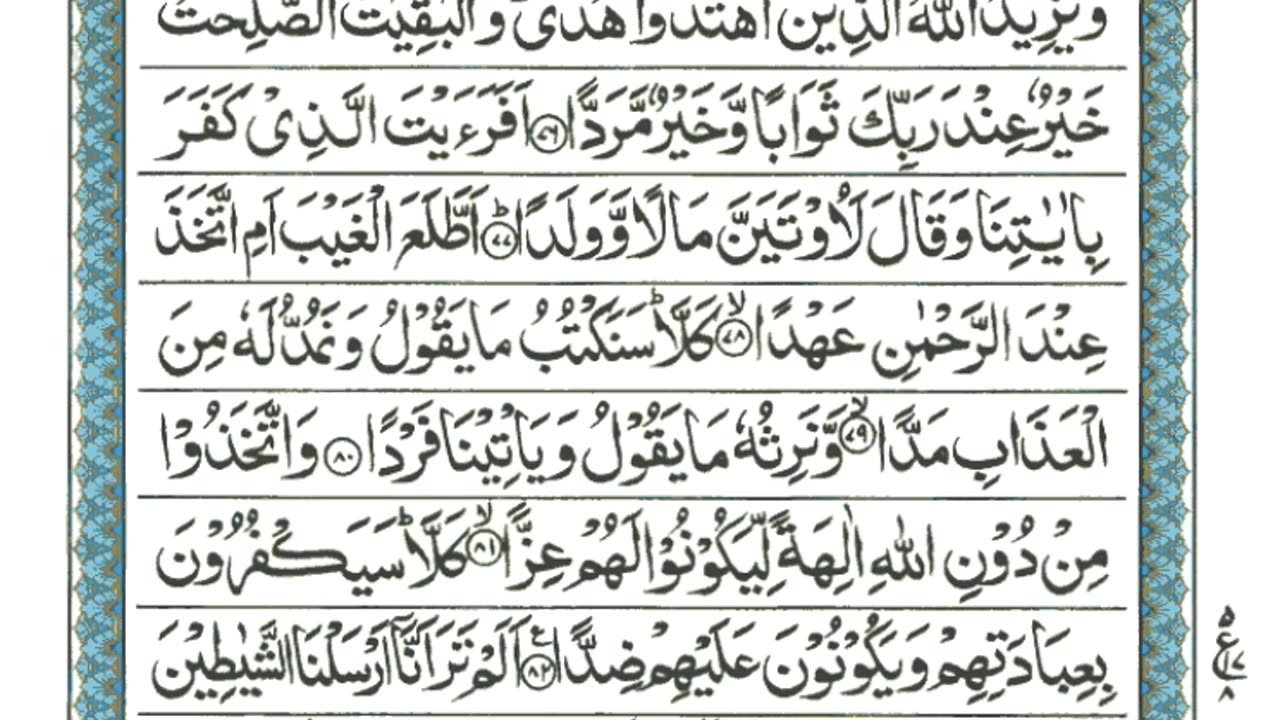 وَيَزِيْدُ اللّٰهُ الَّذِيْنَ اهْتَدَوْا هُدًى ۗ وَالْبٰقِيٰتُ الصّٰلِحٰتُ
خَيْرٌ عِنْدَ رَبِّكَ ثَوَابًا وَّخَيْرٌ مَّرَدًّا ﴿۷۶﴾ اَفَرَءَيْتَ الَّذِىْ كَفَرَ
بِاٰيٰتِنَا وَقَالَ لَاُوْتَيَنَّ مَالًا وَّوَلَدًا ؕ﴿۷۷﴾ اَطَّلَعَ الْغَيْبَ اَمِ اتَّخَذَ
عِنْدَ الرَّحْمٰنِ عَهْدًا ۙ﴿۷۸﴾ كَلَّا ؕ سَنَكْتُبُ مَا يَقُوْلُ وَنَمُدُّ لَهٗ مِنَ
الْعَذَابِ مَدًّا ۙ﴿۷۹﴾ وَّنَرِثُهٗ مَا يَقُوْلُ وَيَاْتِيْنَا فَرْدًا ﴿۸۰﴾ وَاتَّخَذُوْا
مِنْ دُوْنِ اللّٰهِ اٰلِهَةً لِّيَكُوْنُوْا لَهُمْ عِزًّا ۙ﴿۸۱﴾ كَلَّا ؕ سَيَكْفُرُوْنَ
بِعِبَادَتِهِمْ وَيَكُوْنُوْنَ عَلَيْهِمْ ضِدًّا ﴿۸۲﴾ ع اَلَمْ تَرَ اَنَّاۤ اَرْسَلْنَا الشَّيٰطِيْنَ
۵
ع ۱۷
۸